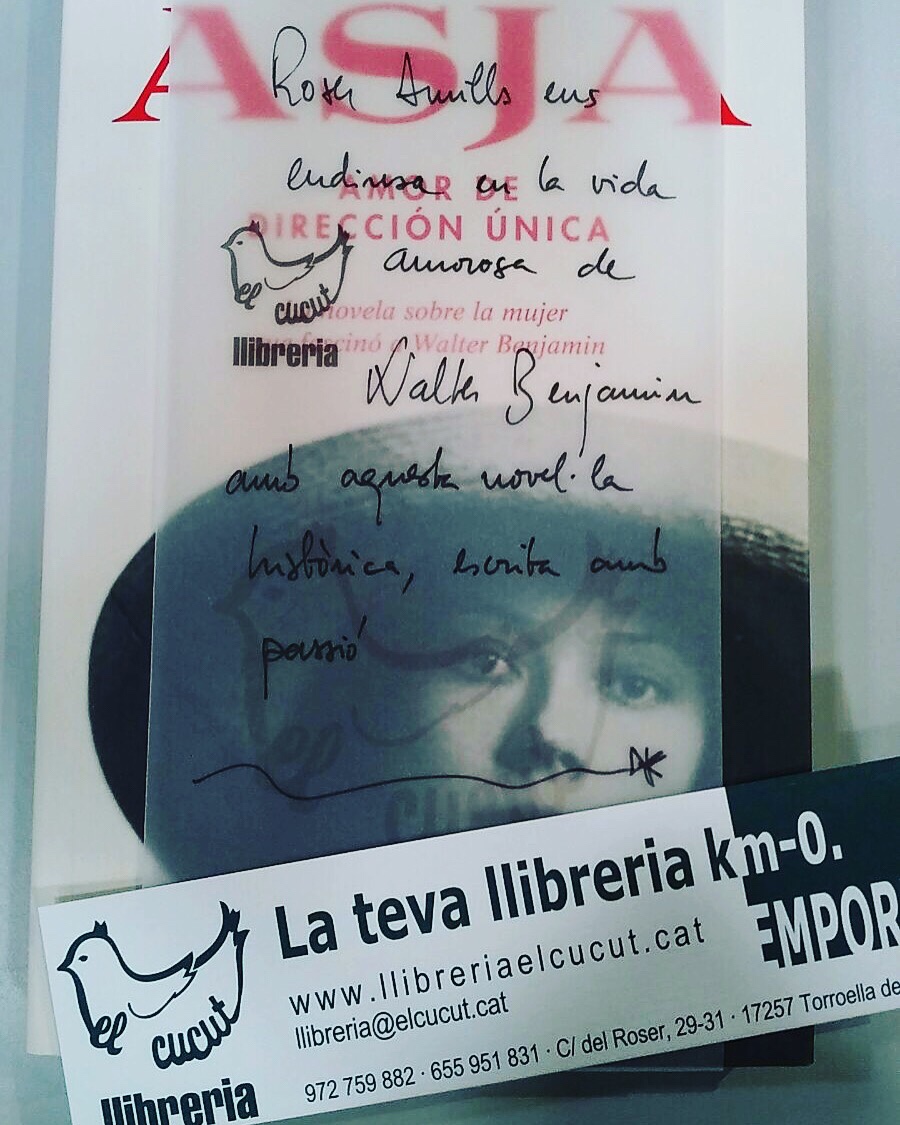 ASJA
Roser Amills ens
endinsa en la vida
AMOR DE
DIRECCIÓN ÚNICA
amorosa de
el cucut
llibreria
novela sobre la mujer
fascinó a Walter Benjamin
Walter Benjamin
amb aquesta novel·la
històrica, escrita amb
passió
el
cucut
La teva llibreria km-0.
EMPOR
www.llibreriaelcucut.cat
llibreria@elcucut.cat
972 759 882 · 655 951 831 · C/ del Roser, 29-31 · 17257 Torroella de
el cucut
llibreria